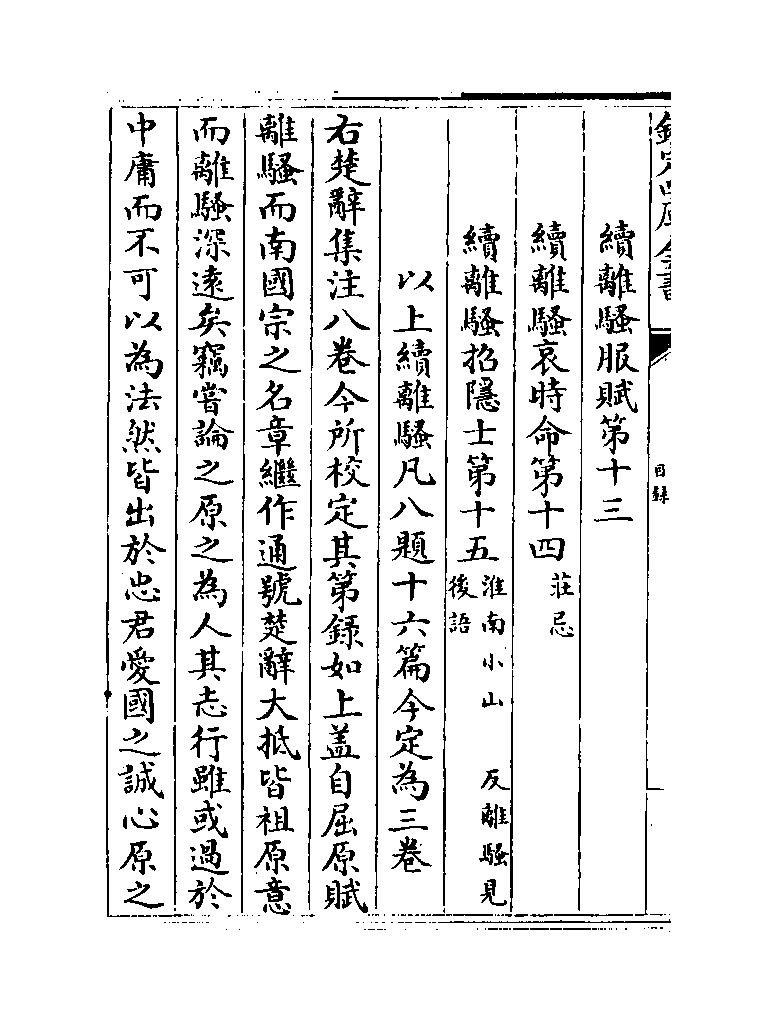 欽定四庫全書
目録
續離騷服賦第十三
續離騷哀時命第十四 莊忌
續離騷招隱士第十五 淮南小山 反離騷見後語
以上續離騷凡八題十六篇今定為三卷
右楚辭集注八卷今所校定其第録如上盖自屈原賦
離騷而南國宗之名章繼作通號楚辭大抵皆祖原意
而離騷深遠矣竊嘗論之原之為人其志行雖或過於
中庸而不可以為法然皆出於忠君愛國之誠心原之